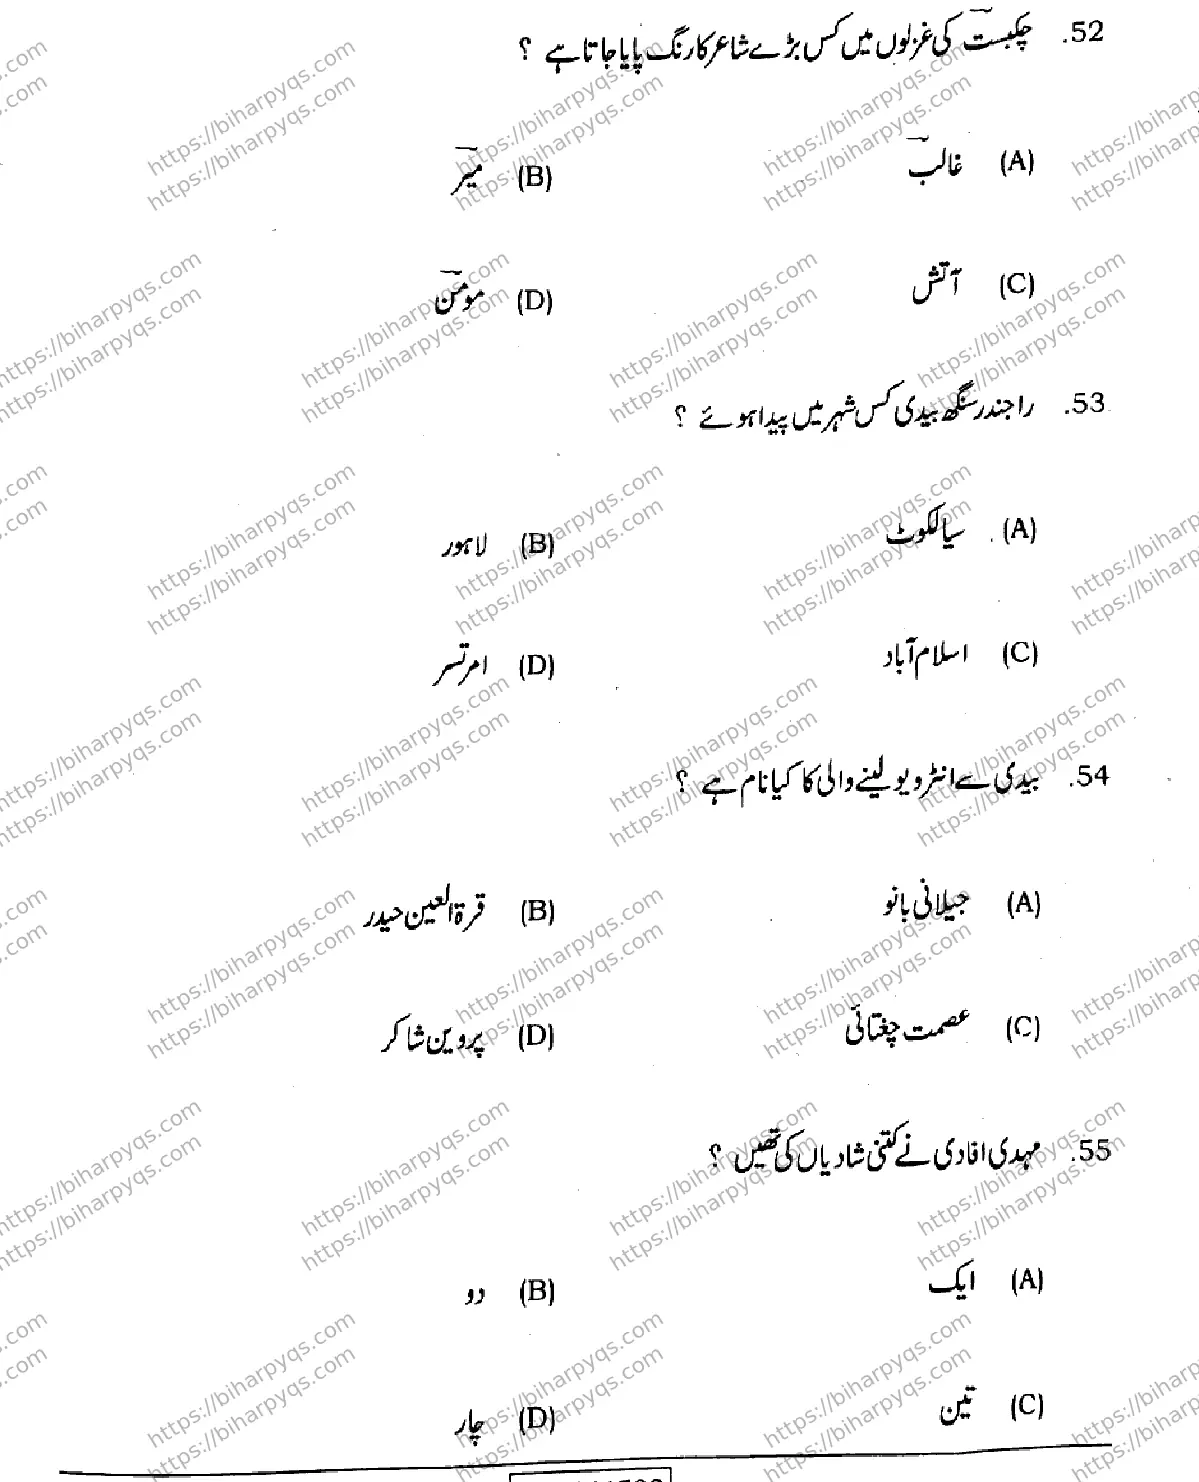 52. چکبست کی غزلوں میں کس بڑے شاعر کا رنگ پایا جاتا ہے ؟
(A) غالب (B) میر
(C) آتش (D) مومن
53. راجندر سنگھ بیدی کس شہر میں پیدا ہوئے ؟
(A) سیالکوٹ (B) لاہور
(C) اسلام آباد (D) امرتسر
54. بیدی سے انٹرویو لینے والی کا کیا نام ہے ؟
(A) جیلانی بانو (B) قرۃ العین حیدر
(C) عصمت چغتائی (D) پروین شاکر
55. مہدی افادی نے کتنی شادیاں کی تھیں ؟
(A) ایک (B) دو
(C) تین (D) چار
https://biharpyqs.com